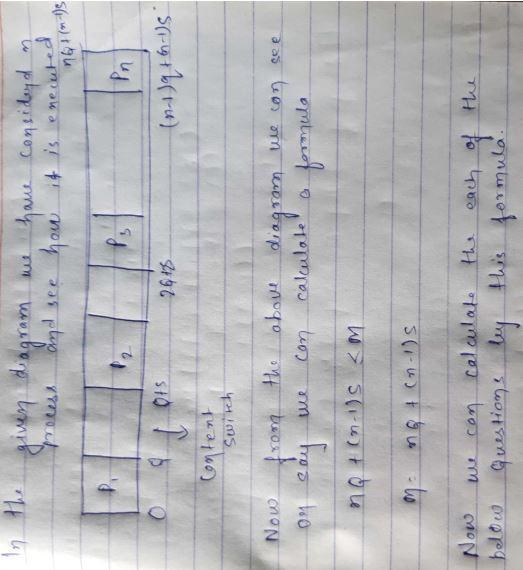 In the given diagram we have considerd n
process and see how it is executed
nQ+(n-1)S
P1 P2 P3 Pn
0 Q Q+S 2Q+2S (n-1)q+(n-1)S
Context
switch
Now from the above diagram we can see
or say we can calculate a formula
nQ + (n-1)S ≤ M
M = nQ + (n-1)S
Now we can calculate the each of the
below questions by this formula.